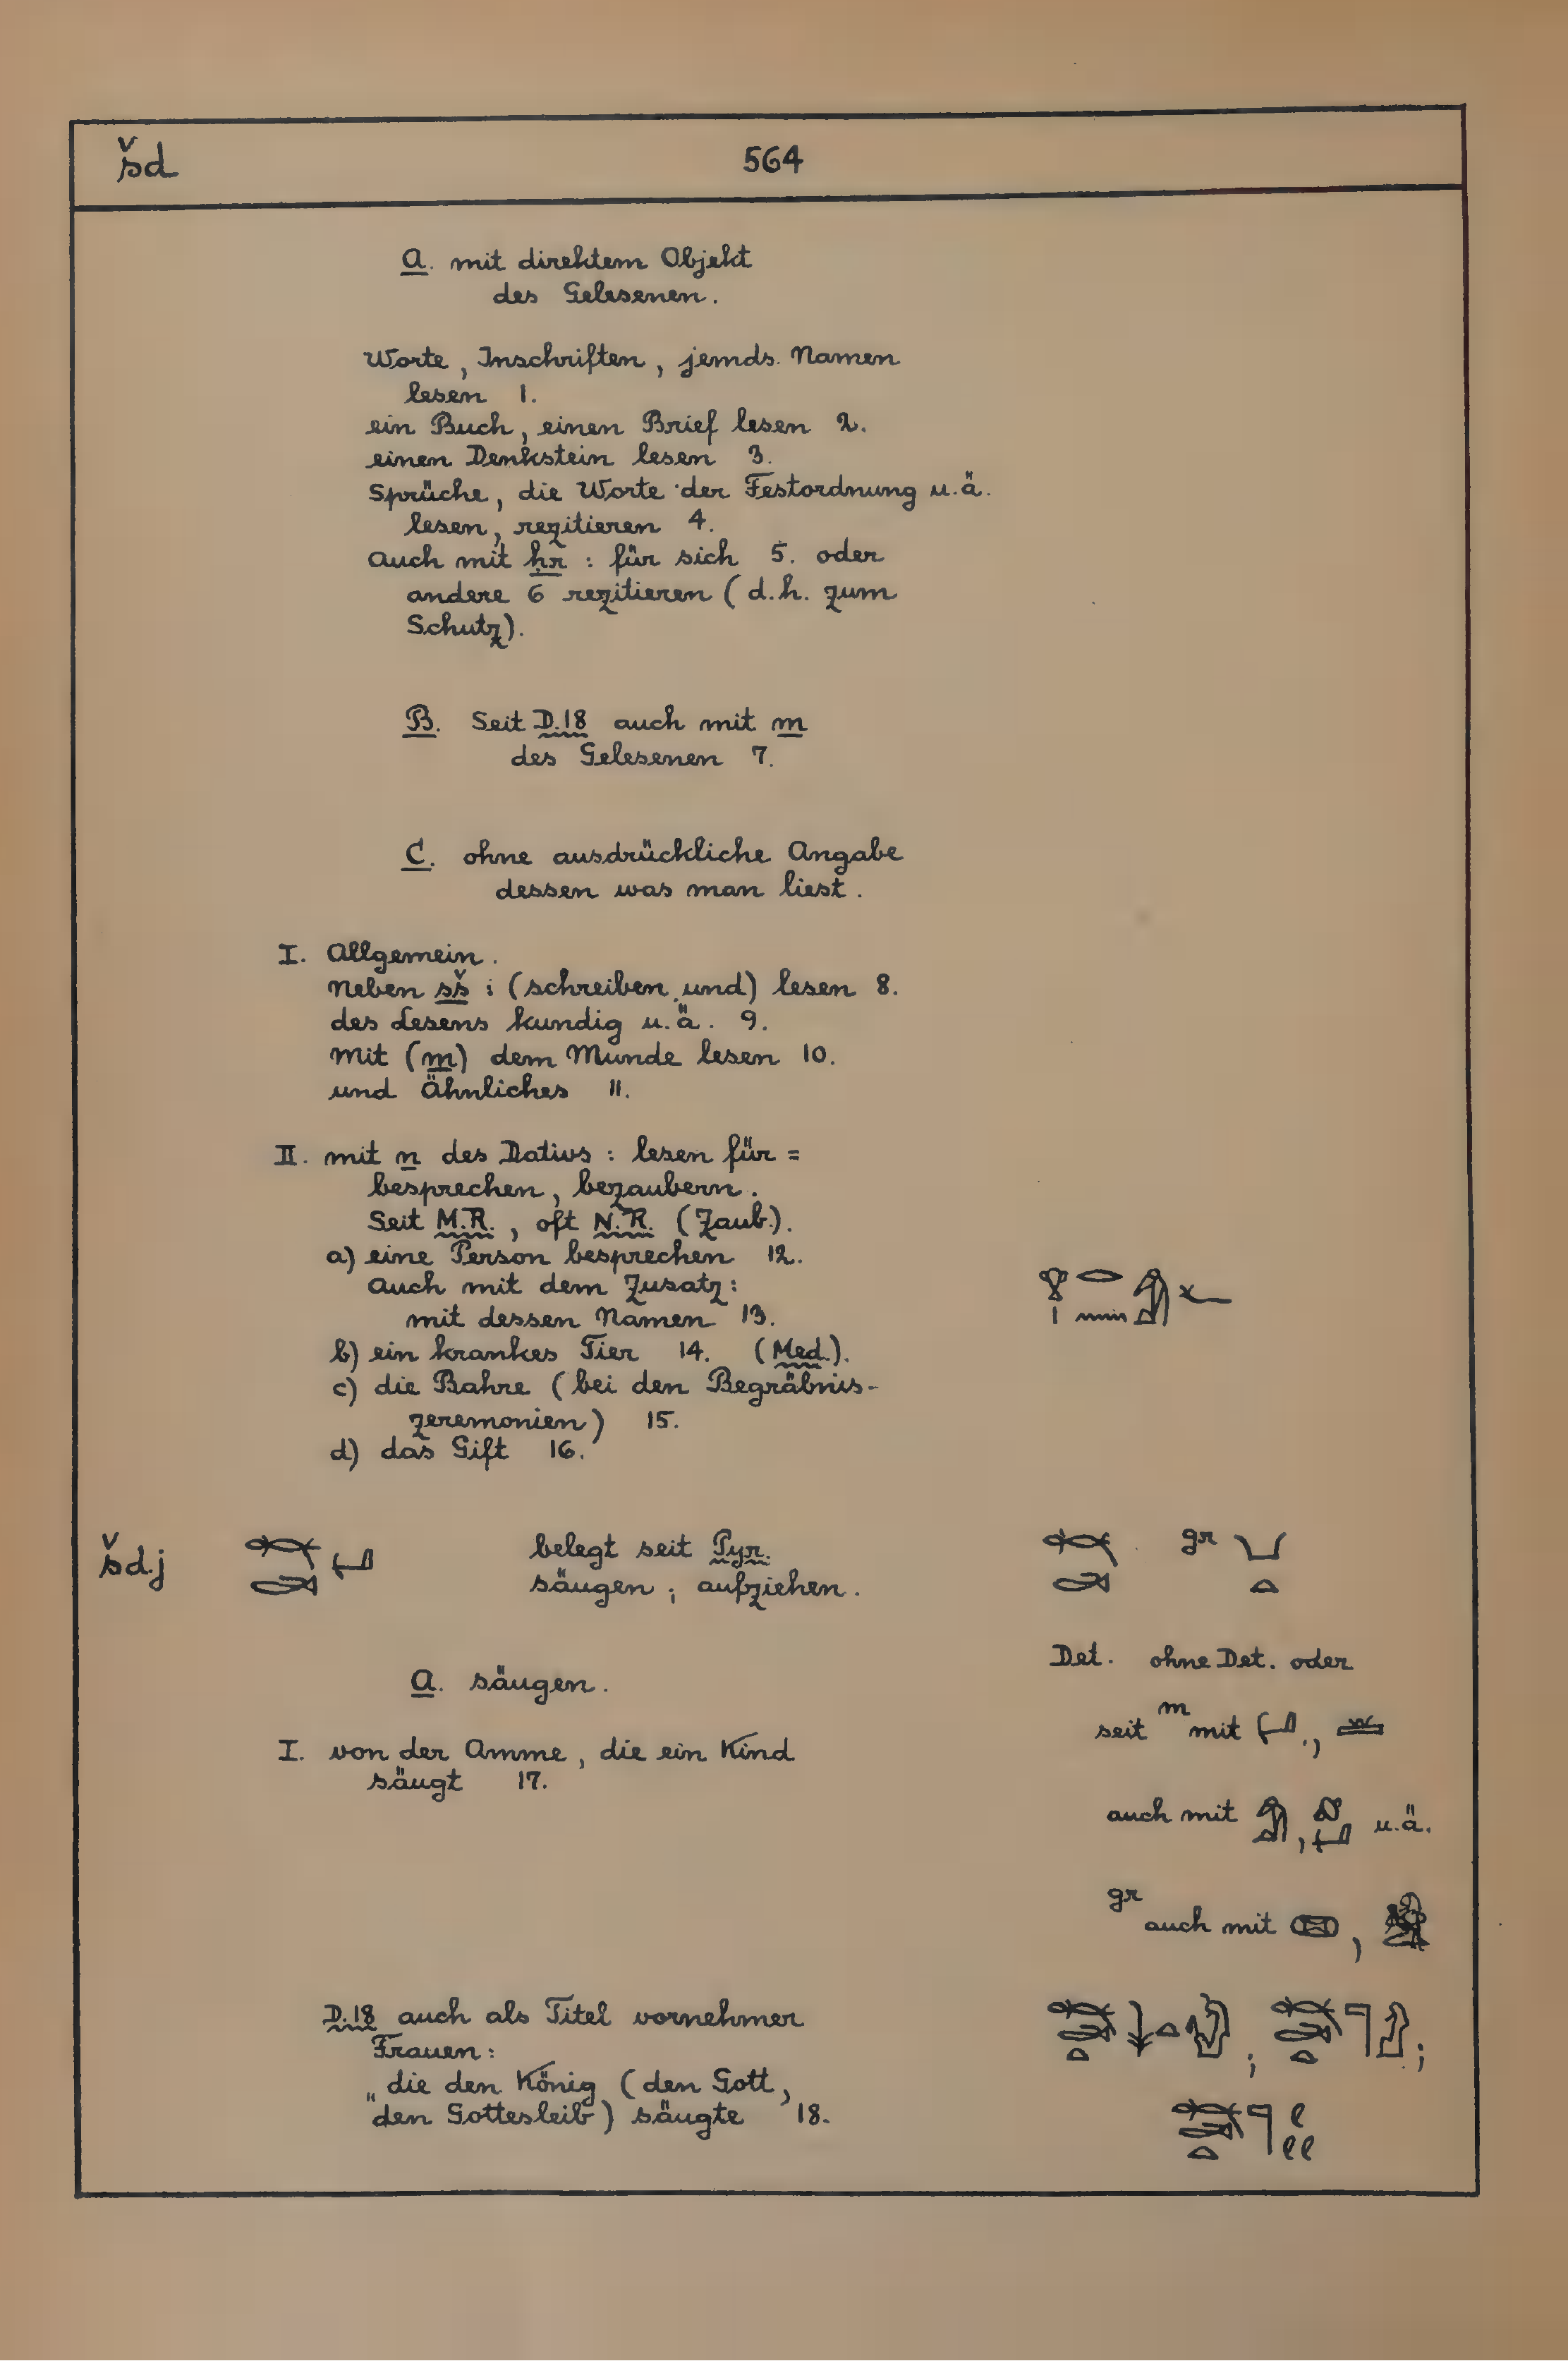 šd 564
A. mit direktem Objekt
des Gelesenen.
Worte, Inschriften, jemds. Namen
lesen 1.
ein Buch, einen Brief lesen 2.
einen Denkstein lesen 3.
Sprüche, die Worte der Festordnung u.ä.
lesen, rezitieren 4.
Auch mit ḥr : für sich 5. oder
andere 6 rezitieren (d.h. zum
Schutz).
B. Seit D.18 auch mit m
des Gelesenen 7.
C. ohne ausdrückliche Angabe
dessen was man liest.
I. Allgemein.
Neben sš : (schreiben und) lesen 8.
des Lesens kundig u.ä. 9.
Mit (m) dem Munde lesen 10.
und Ähnliches 11.
II. mit n des Dativs : lesen für =
besprechen, bezaubern.
Seit M.R., oft N.R. (Zaub.).
a) eine Person besprechen 12.
Auch mit dem Zusatz:
mit dessen Namen 13.
b) ein krankes Tier 14. (Med.).
c) die Bahre (bei den Begräbnis-
zeremonien) 15.
d) das Gift 16.
šdj belegt seit Pyr. gr
säugen ; aufziehen.
Det. ohne Det. oder
A. säugen.
seit m mit , 
I. von der Amme, die ein Kind
säugt 17.
auch mit , u.ä.
gr auch mit ,
D.18 auch als Titel vornehmer
Frauen: ; ;
„die den König (den Gott,
den Gottesleib) säugte 18.